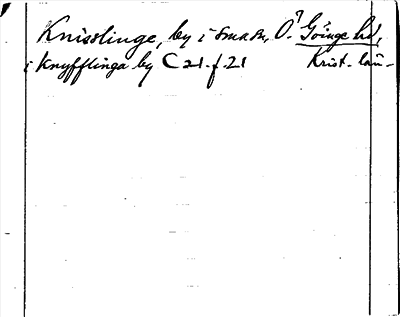 Knisslinge, by i smssn, O? Göinge hd,
i knyfflinga by C 21 f. 21 Krist. län